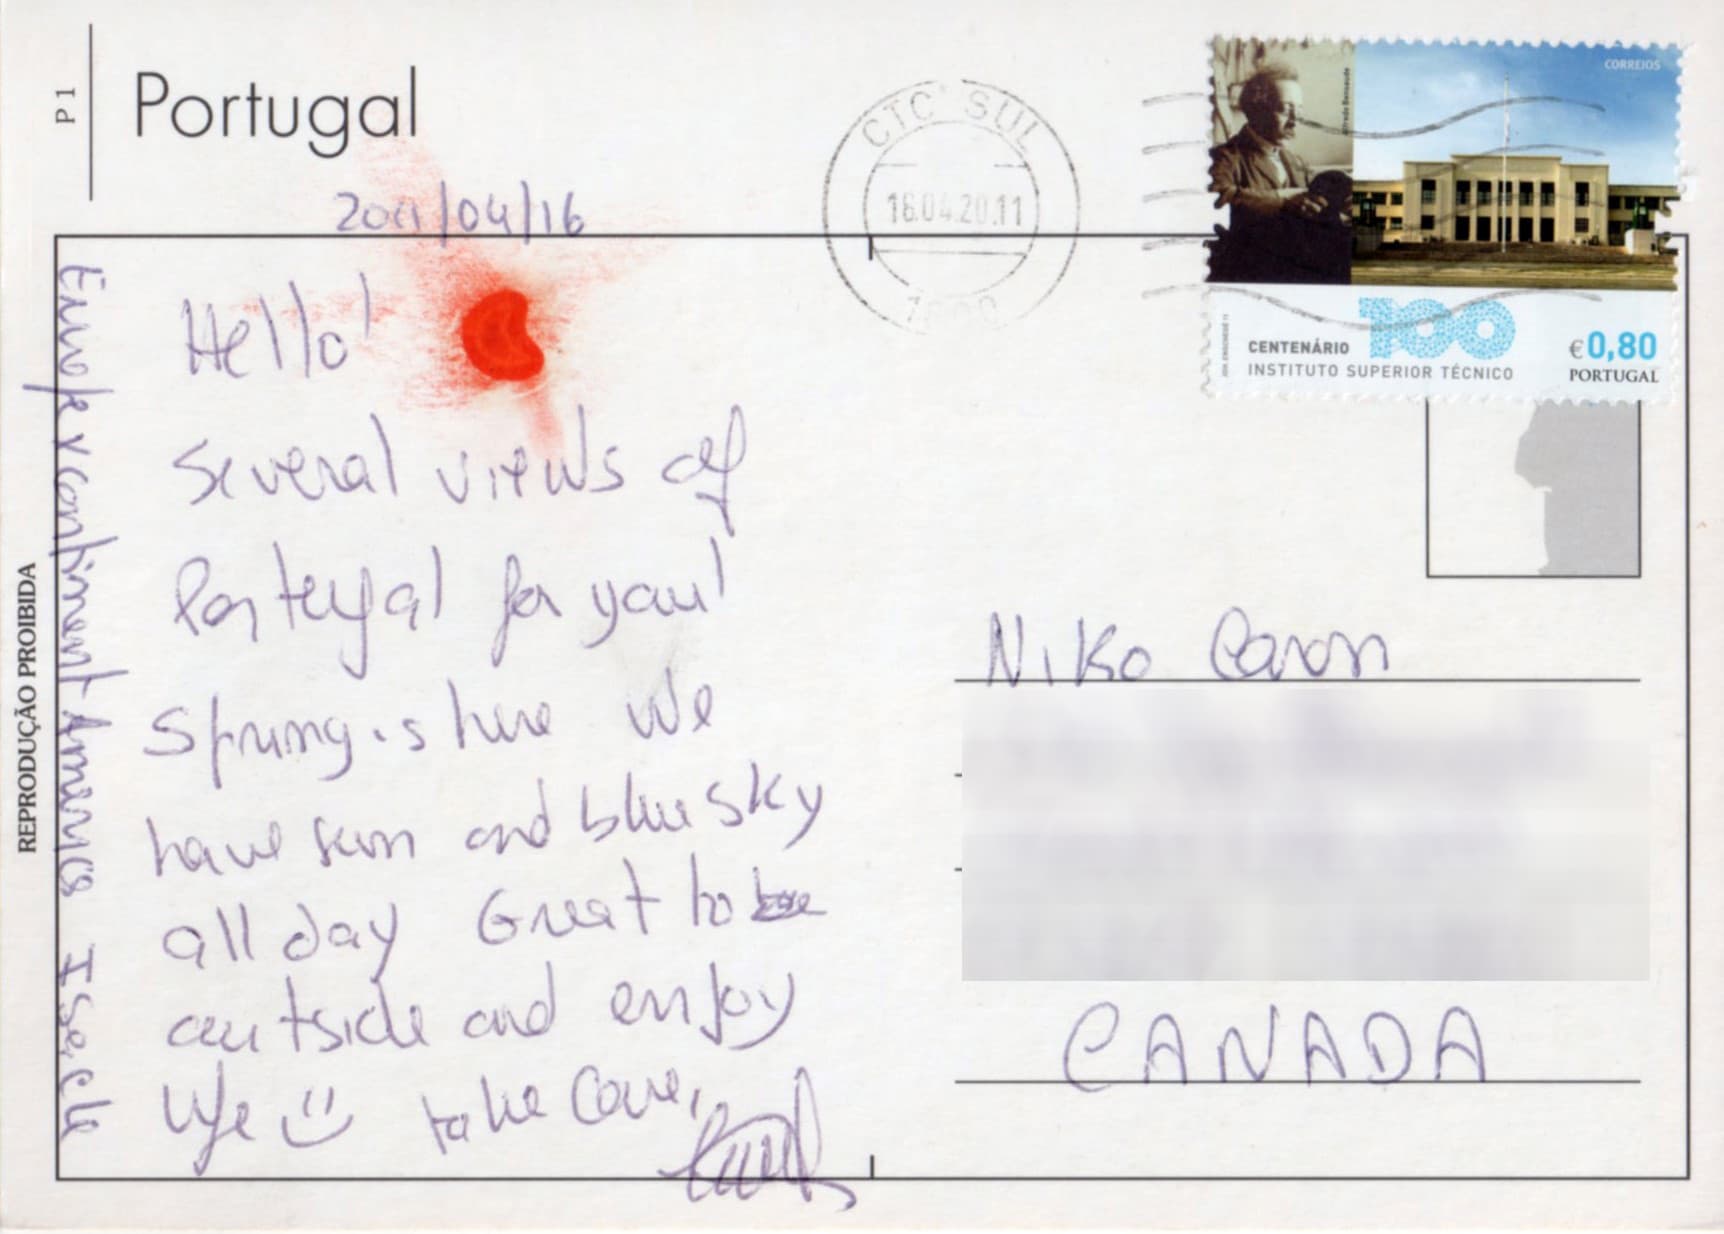 P 1
Portugal
2011/04/16
CTC SUL
18.04.20.11
CORREIOS
Alfredo Bensaude
CENTENÁRIO
100
INSTITUTO SUPERIOR TÉCNICO
€0,80
PORTUGAL
Hello!
Several views of
Portugal for you!
Spring is here We
have sun and blue sky
all day Great to be
outside and enjoy
life take care,
REPRODUÇÃO PROIBIDA
continent America
Niko Caron
CANADA